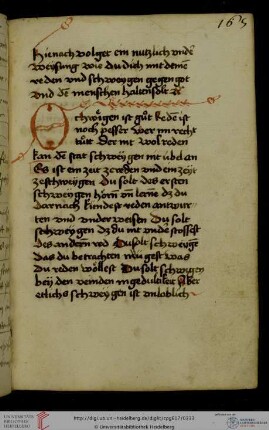 165
Hienach volget ein nutzlich unde
weysung wie du dich mit deine
reden und schweygen gegen got
und de menschen halten solt
Schwigen ist gut Rede ist
noch pesser wer im recht
tut Der mit wol reden
kan de stat schweygen nit ubel an
Es ist ein zeit ze reden und ein zeyt
zeschweygen Du solt des ersten
schweygen horn un lerne dz du
darnach kundest reden antwur
ten und underweisen Du solt
schweygen dz du nit unde stossest
des andern red Du solt schweyge
das du betrachten mugest was
du reden wollest Du solt schwigen
bey den veinden in gedultikeit Aber
etlichs schweygen ist unloblich
http://digi.ub.uni-heidelberg.de/diglit/cpg617/0333
© Universitätsbibliothek Heidelberg